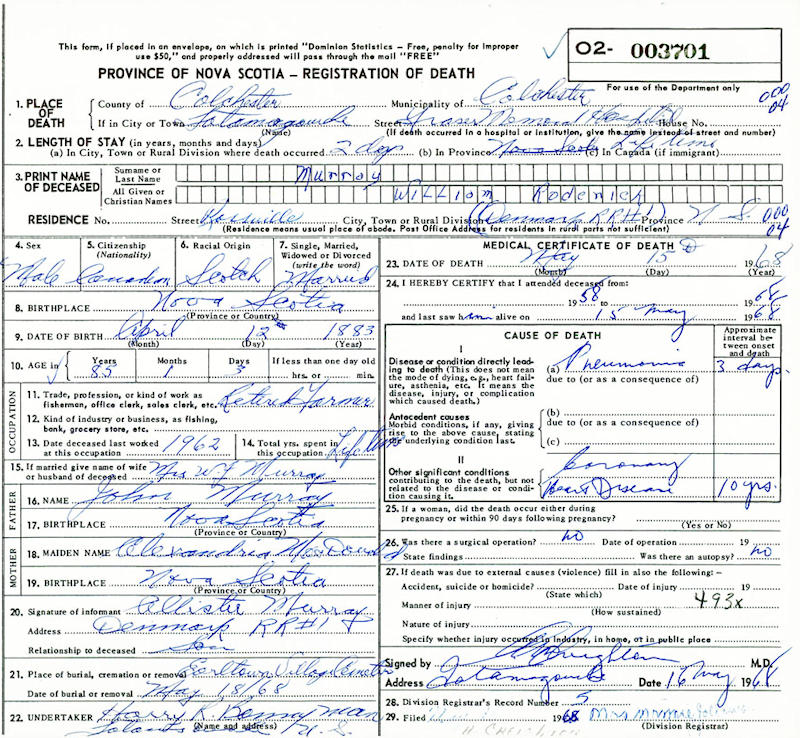 This form, if placed in an envelope, on which is printed "Dominion Statistics – Free, penalty for improper
use $50," and properly addressed will pass through the mail "FREE"
O2- 003701
PROVINCE OF NOVA SCOTIA – REGISTRATION OF DEATH
For use of the Department only
1. PLACE OF DEATH
County of Colchester Municipality of Colchester 000 04
If in City or Town Tatamagouche Street Fraser Memorial Hospital House No.
(Name) (If death occurred in a hospital or institution, give the name instead of street and number)
2. LENGTH OF STAY (in years, months and days)
(a) In City, Town or Rural Division where death occurred 2 days (b) In Province Nova Scotia Lifetime (c) In Canada (if immigrant)
3. PRINT NAME OF DECEASED
Surname or Last Name Murray
All Given or Christian Names William Roderick
RESIDENCE No. Street City, Town or Rural Division (Denmark RR#1) Province N S 000 04
(Residence means usual place of abode. Post Office Address for residents in rural parts not sufficient)
4. Sex 5. Citizenship (Nationality) 6. Racial Origin 7. Single, Married, Widowed or Divorced (write the word)
Male Canadian Scotch Married
8. BIRTHPLACE Nova Scotia
(Province or Country)
9. DATE OF BIRTH April 12 1883
(Month) (Day) (Year)
10. AGE in Years Months Days If less than one day old
85 1 3 hrs. or min.
OCCUPATION
11. Trade, profession, or kind of work as
fisherman, office clerk, sales clerk, etc. Retired Farmer
12. Kind of industry or business, as fishing,
bank, grocery store, etc.
13. Date deceased last worked at this occupation 1962 14. Total yrs. spent in this occupation Lifetime
15. If married give name of wife or husband of deceased Mrs W Murray
FATHER
16. NAME John Murray
17. BIRTHPLACE Nova Scotia
(Province or Country)
MOTHER
18. MAIDEN NAME Alexandria McDonald
19. BIRTHPLACE Nova Scotia
(Province or Country)
20. Signature of informant Allister Murray
Address Denmark RR#1
Relationship to deceased Son
21. Place of burial, cremation or removal Earltown Village Cemetery
Date of burial or removal May 18/68
22. UNDERTAKER Harry R.
(Name and address) N.S.
MEDICAL CERTIFICATE OF DEATH
23. DATE OF DEATH May 15 1968
(Month) (Day) (Year)
24. I HEREBY CERTIFY that I attended deceased from:
1958 to 1968
and last saw him alive on 15 May 1968
CAUSE OF DEATH Approximate interval between onset and death
I
Disease or condition directly leading to death (This does not mean the mode of dying, e.g., heart failure, asthenia, etc. It means the disease, injury, or complication which caused death.)
(a) Pneumonia 3 days
due to (or as a consequence of)
Antecedent causes
Morbid conditions, if any, giving rise to the above cause, stating the underlying condition last.
(b)
due to (or as a consequence of)
(c)
II
Other significant conditions contributing to the death, but not related to the disease or condition causing it.
Coronary
Heart Disease 10 yrs.
25. If a woman, did the death occur either during
pregnancy or within 90 days following pregnancy?
(Yes or No)
26. Was there a surgical operation? no Date of operation 19
State findings Was there an autopsy? no
27. If death was due to external causes (violence) fill in also the following:–
Accident, suicide or homicide? Date of injury 19
(State which)
Manner of injury 493x
(How sustained)
Nature of injury
Specify whether injury occurred in industry, in home, or in public place
Signed by Creighton M.D.
Address Tatamagouche Date 16 May 1968
28. Division Registrar's Record Number 5
29. Filed 1968 Mrs
(Division Registrar)